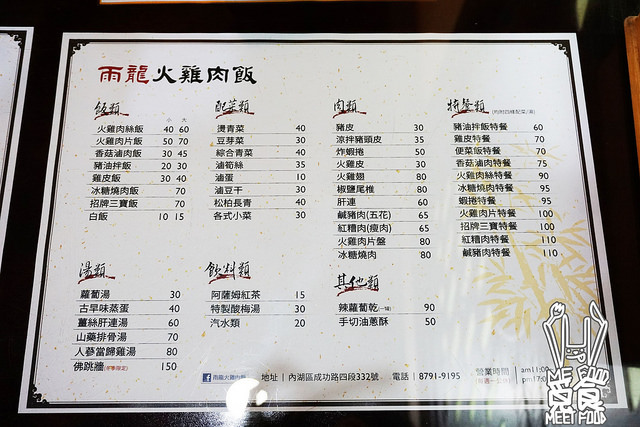 雨龍火雞肉飯
飯類
小 大
火雞肉絲飯 40 60
火雞肉片飯 50 70
香菇滷肉飯 30 45
豬油拌飯 20 30
雞皮飯 30 40
冰糖燒肉飯 70
招牌三寶飯 70
白飯 10 15
配菜類
燙青菜 40
豆芽菜 30
綜合青菜 40
滷筍絲 35
滷蛋 10
滷豆干 30
松柏長青 40
各式小菜 30
肉類
豬皮 30
涼拌豬頭皮 35
炸蝦捲 50
火雞皮 30
火雞翅 80
椒鹽尾椎 80
肝連 60
鹹豬肉(五花) 65
紅糟肉(瘦肉) 65
火雞肉片盤 80
冰糖燒肉 80
特餐類
豬油拌飯特餐 60
雞皮特餐 70
便菜飯特餐 70
香菇滷肉特餐 75
火雞肉絲特餐 90
冰糖燒肉特餐 95
蝦捲特餐 95
火雞肉片特餐 100
招牌三寶特餐 100
紅糟肉特餐 110
鹹豬肉特餐 110
湯類
蘿蔔湯 30
古早味蒸蛋 40
薑絲肝連湯 60
山藥排骨湯 70
人蔘當歸雞湯 80
佛跳牆(冬季限定) 150
飲料類
阿薩姆紅茶 15
特製酸梅湯 30
汽水類 20
其他類
辣蘿蔔乾(一罐) 90
手切油蔥酥 50
雨龍火雞肉飯 地址｜內湖區成功路四段332號 電話｜8791-9195
營業時間 am11:0
pm17:0
MEET FOUR